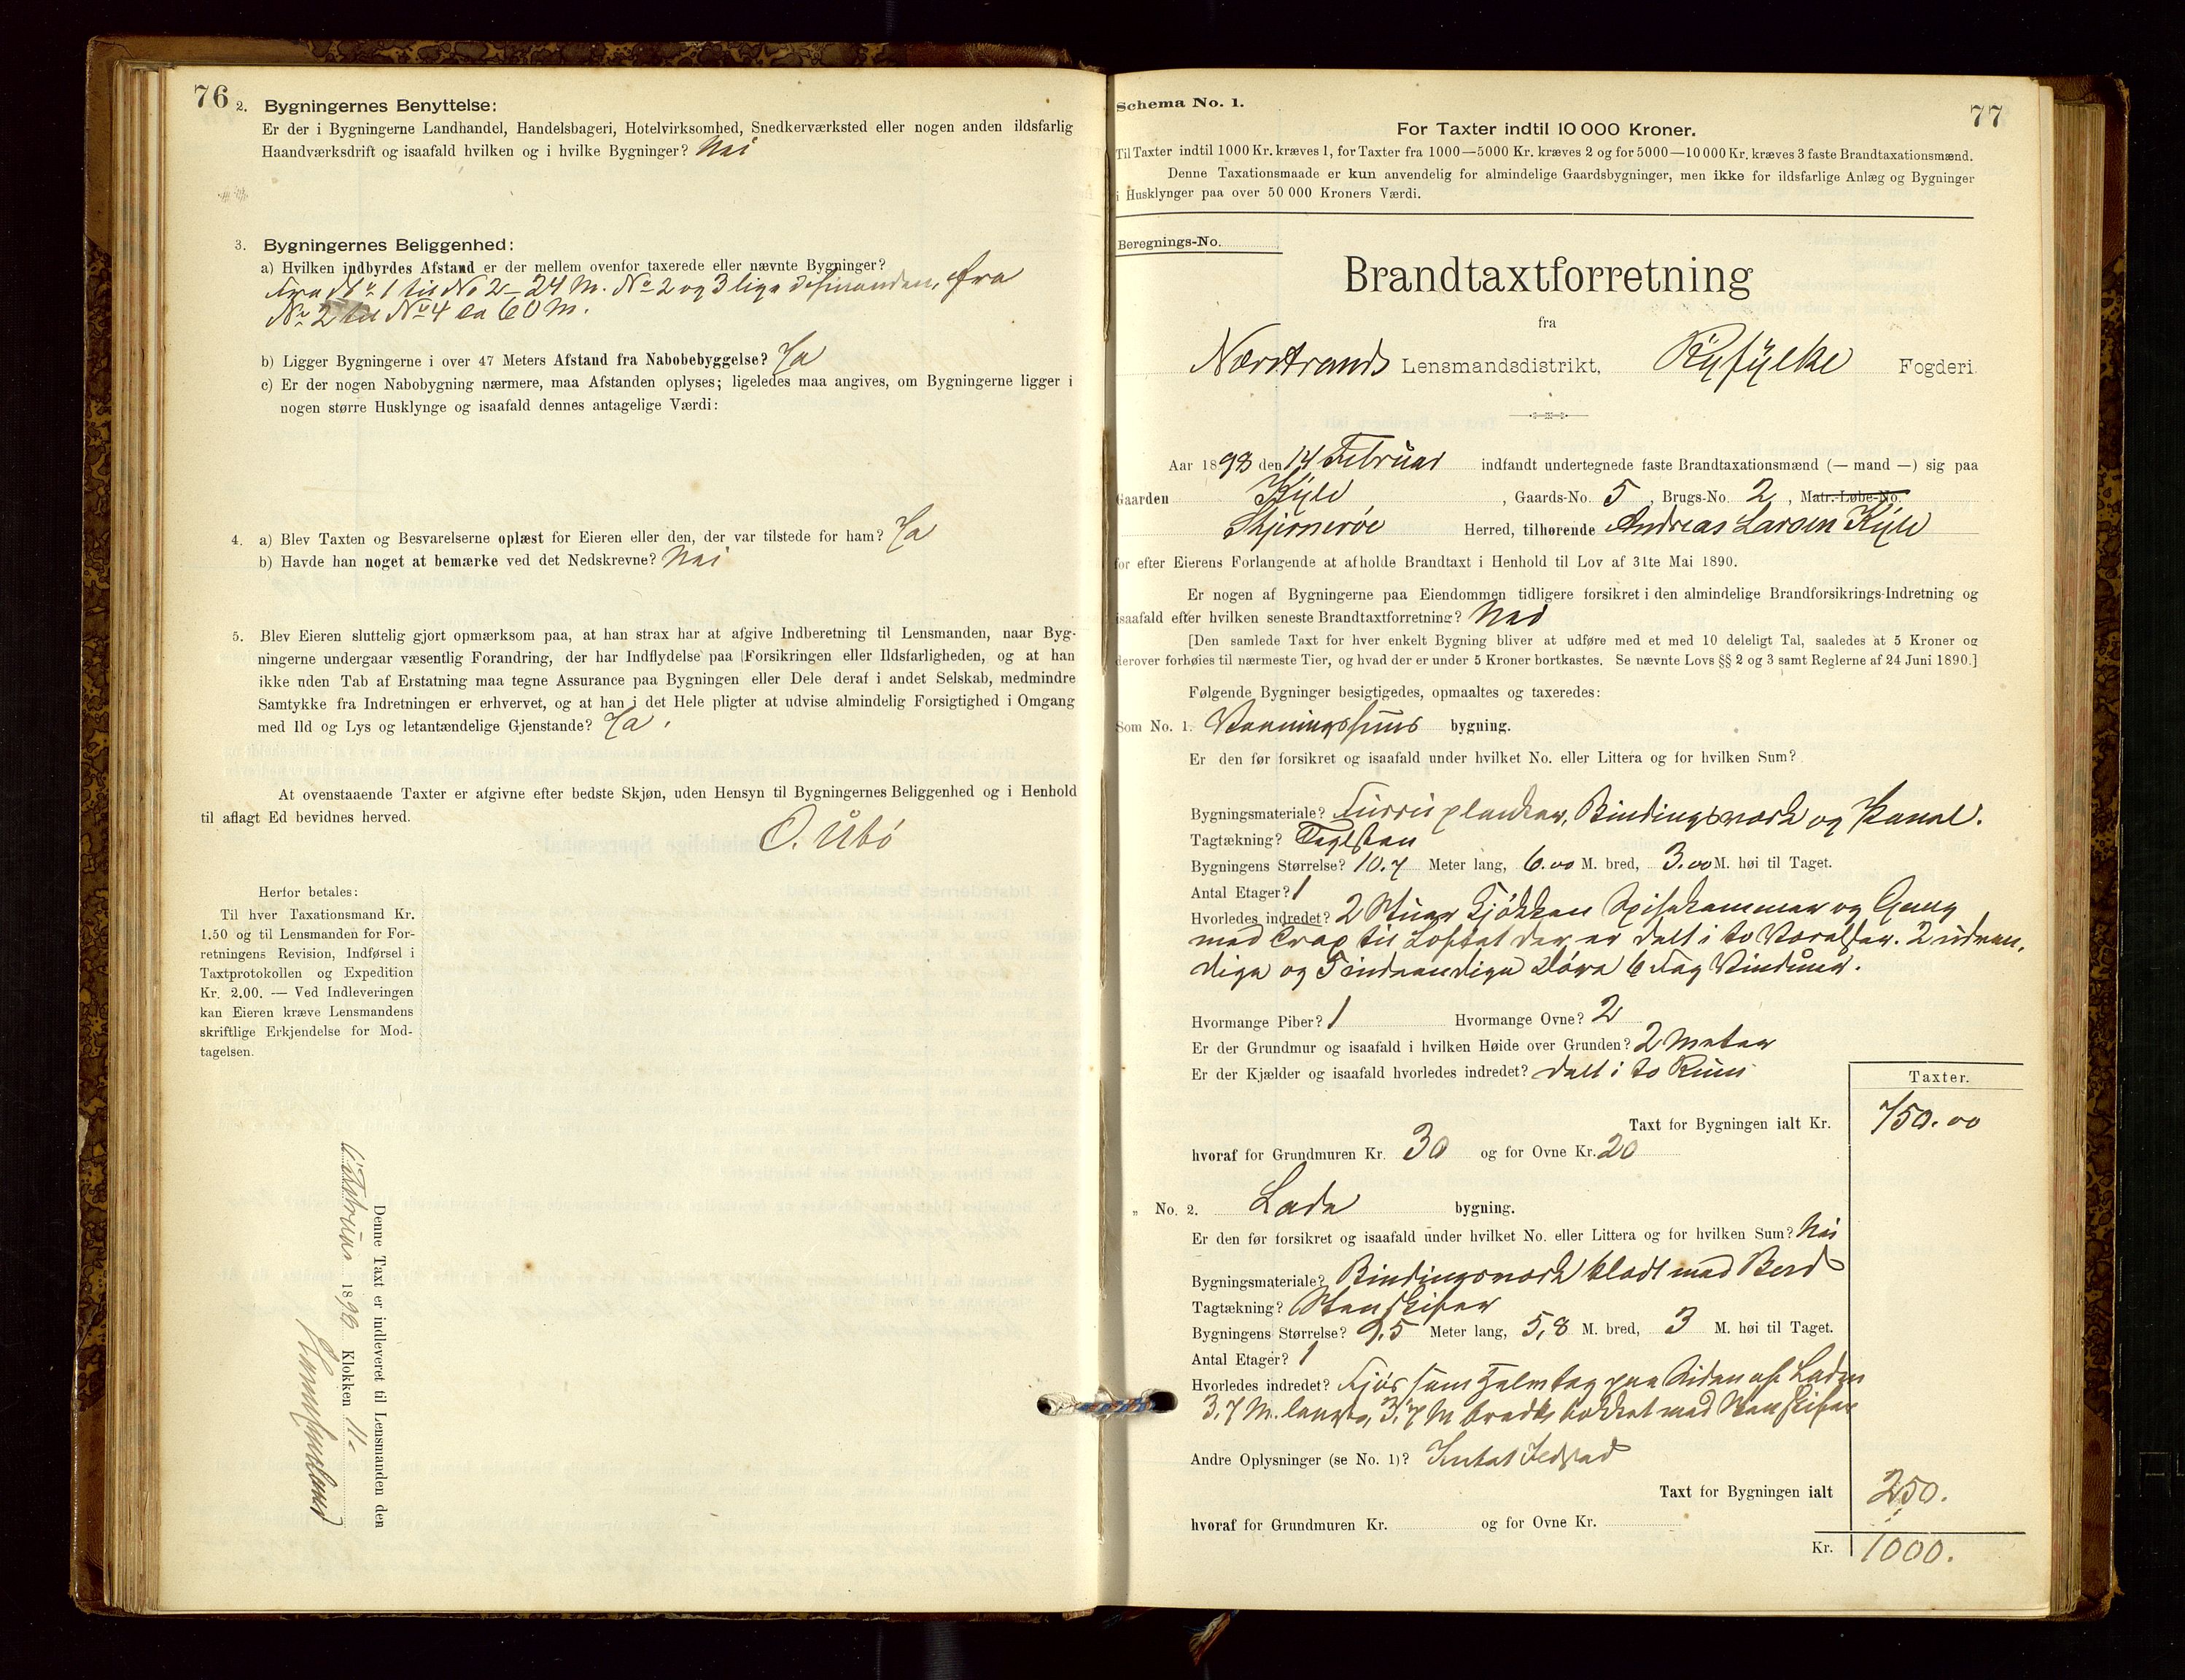 76
2. Bygningernes Benyttelse:
Er der i Bygningerne Landhandel, Handelsbageri, Hotelvirksomhed, Snedkerværksted eller nogen anden ildsfarlig
Haandværksdrift og isaafald hvilken og i hvilke Bygninger? Nei
3. Bygningernes Beliggenhed:
a) Hvilken indbyrdes Afstand er der mellem ovenfor taxerede eller nævnte Bygninger?
Fra No 1 til No 2 - 24 M. No 2 og 3 lige fra
No 2 til No 4 ca 60 M.
b) Ligger Bygningerne i over 47 Meters Afstand fra Nabobebyggelse? Ja
c) Er der nogen Nabobygning nærmere, maa Afstanden oplyses; ligeledes maa angives, om Bygningerne ligger i
nogen større Husklynge og isaafald dennes antagelige Værdi:
4. a) Blev Taxten og Besvarelserne oplæst for Eieren eller den, der var tilstede for ham? Ja
b) Havde han noget at bemærke ved det Nedskrevne? Nei
5. Blev Eieren sluttelig gjort opmærksom paa, at han strax har at afgive Indberetning til Lensmanden, naar Byg-
ningerne undergaar væsentlig Forandring, der har Indflydelse paa Forsikringen eller Ildsfarligheden, og at han
ikke uden Tab af Erstatning maa tegne Assurance paa Bygningen eller Dele deraf i andet Selskab, medmindre
Samtykke fra Indretningen er erhvervet, og at han i det Hele pligter at udvise almindelig Forsigtighed i Omgang
med Ild og Lys og letantændelige Gjenstande? Ja.
At ovenstaaende Taxter er afgivne efter bedste Skjøn, uden Hensyn til Bygningernes Beliggenhed og i Henhold
til aflagt Ed bevidnes herved.
O. Ubø
Herfor betales:
Til hver Taxationsmand Kr.
1.50 og til Lensmanden for For-
retningens Revision, Indførsel i
Taxtprotokollen og Expedition
Kr. 2.00. — Ved Indleveringen
kan Eieren kræve Lensmandens
skriftlige Erkjendelse for Mod-
tagelsen.
Denne Taxt er indleveret til Lensmanden den
Februar 1898 Klokken 11
Schema No. 1.
77
For Taxter indtil 10 000 Kroner.
Til Taxter indtil 1000 Kr. kræves 1, for Taxter fra 1000—5000 Kr. kræves 2 og for 5000—10 000 Kr. kræves 3 faste Brandtaxationsmænd.
Denne Taxationsmaade er kun anvendelig for almindelige Gaardsbygninger, men ikke for ildsfarlige Anlæg og Bygninger
i Husklynger paa over 50 000 Kroners Værdi.
Beregnings-No.
Brandtaxtforretning
fra
Nærstrands Lensmandsdistrikt, Ryfylke Fogderi
Aar 1898 den 14 Februar indfandt undertegnede faste Brandtaxationsmænd (— mand —) sig paa
Gaarden Kyle, Gaards-No. 5, Brugs-No. 2, Matr.-Løbe-No.
Skjernerøe Herred, tilhørende Andreas Larsen Kyle
for efter Eierens Forlangende at afholde Brandtaxt i Henhold til Lov af 31te Mai 1890.
Er nogen af Bygningerne paa Eiendommen tidligere forsikret i den almindelige Brandforsikrings-Indretning og
isaafald efter hvilken seneste Brandtaxtforretning? Nei
[Den samlede Taxt for hver enkelt Bygning bliver at udføre med et med 10 deleligt Tal, saaledes at 5 Kroner og
derover forhøies til nærmeste Tier, og hvad der er under 5 Kroner bortkastes. Se nævnte Lovs §§ 2 og 3 samt Reglerne af 24 Juni 1890.]
Følgende Bygninger besigtigedes, opmaaltes og taxeredes:
Som No. 1. Vaaningshuus bygning.
Er den før forsikret og isaafald under hvilket No. eller Littera og for hvilken Sum?
Bygningsmateriale? Furru planker, Bindingsværk og Panel.
Tagtækning? Teglsten
Bygningens Størrelse? 10.7 Meter lang, 6.00 M. bred, 3.00 M. høi til Taget.
Antal Etager? 1
Hvorledes indredet? 2 Stuer Kjøkken Spisekammer og Gang
med Trap til Loftet der er delt i to Værelser. 2 udven-
dige og 5 indvendige Døre 6 Fag Vinduer.
Hvormange Piber? 1 Hvormange Ovne? 2
Er der Grundmur og isaafald i hvilken Høide over Grunden? 2 Meter
Er der Kjælder og isaafald hvorledes indredet? delt i to Rum
Taxter.
Taxt for Bygningen ialt Kr. 750.00
hvoraf for Grundmuren Kr. 30 og for Ovne Kr. 20
„ No. 2. Lade bygning.
Er den før forsikret og isaafald under hvilket No. eller Littera og for hvilken Sum? Nei
Bygningsmateriale? Bindingsværk klædt med Bord
Tagtækning? Stenskifer
Bygningens Størrelse? 9,5 Meter lang, 5,8 M. bred, 3 M. høi til Taget.
Antal Etager? 1
Hvorledes indredet? Fjøs som paa Siden af Laden
3,7 M. længde, 3,7 M bredde tækket med Stenskifer
Andre Oplysninger (se No. 1)? Intet Ildsted
Taxt for Bygningen ialt 250.
hvoraf for Grundmuren Kr. og for Ovne Kr.
Kr. 1000.